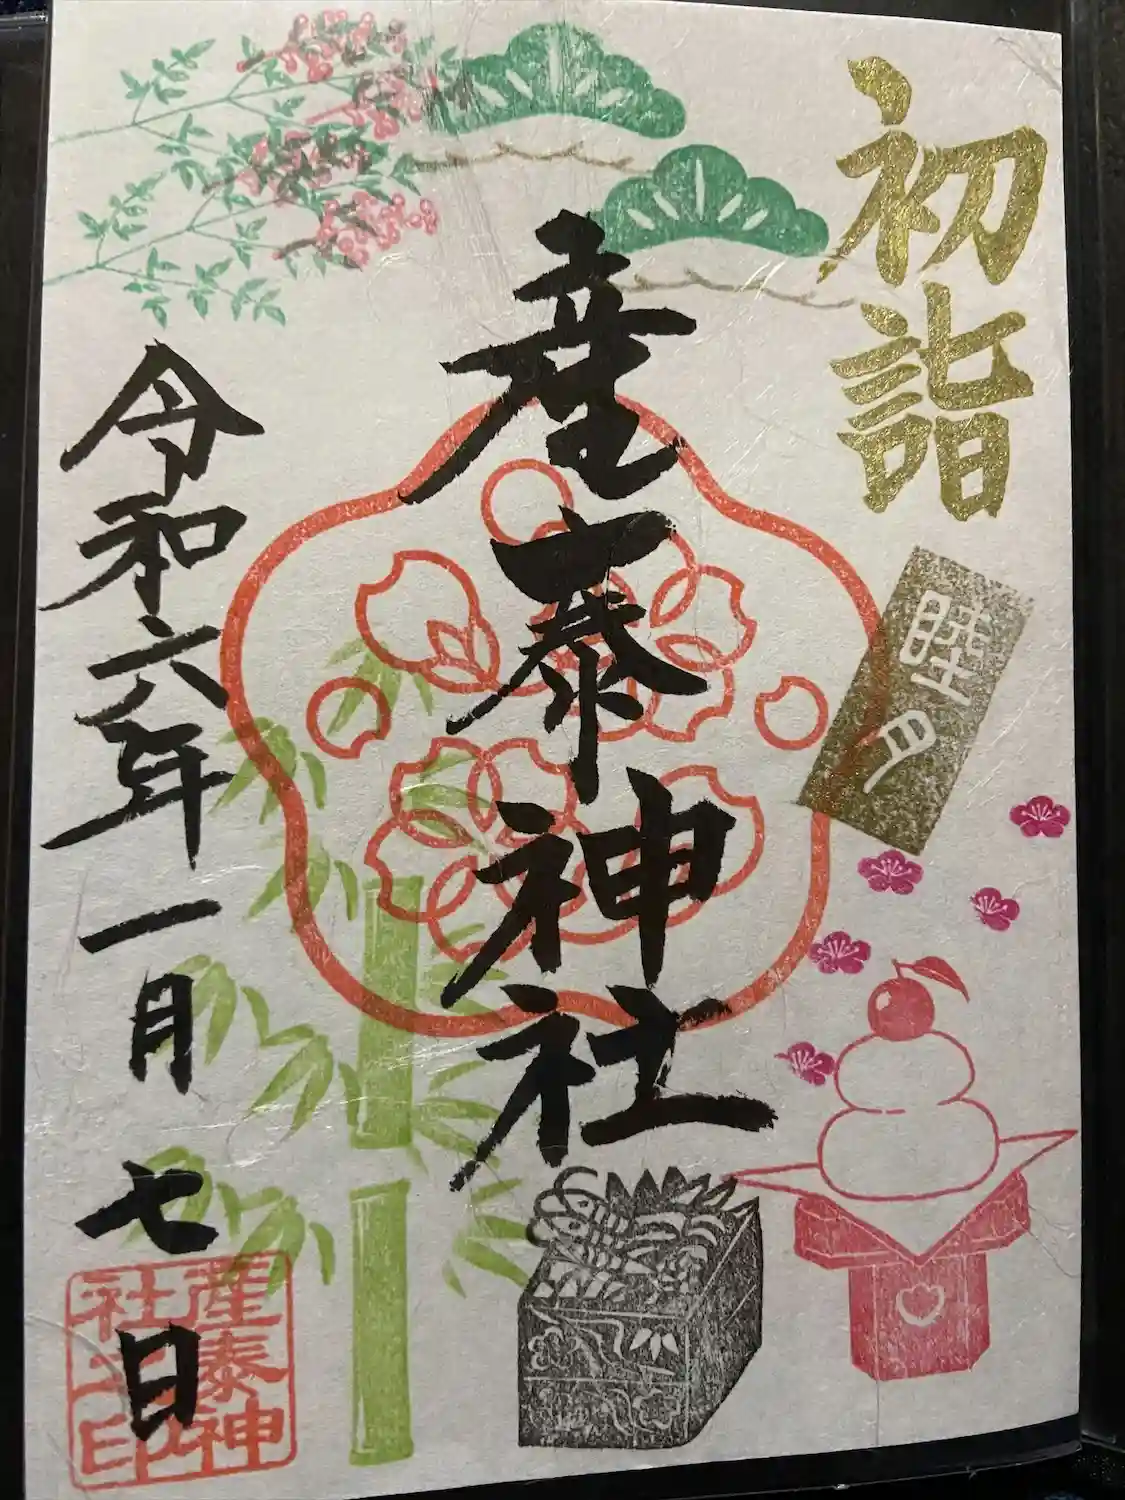 初詣
睦月
産泰神社
令和六年一月七日
産泰神
社之印